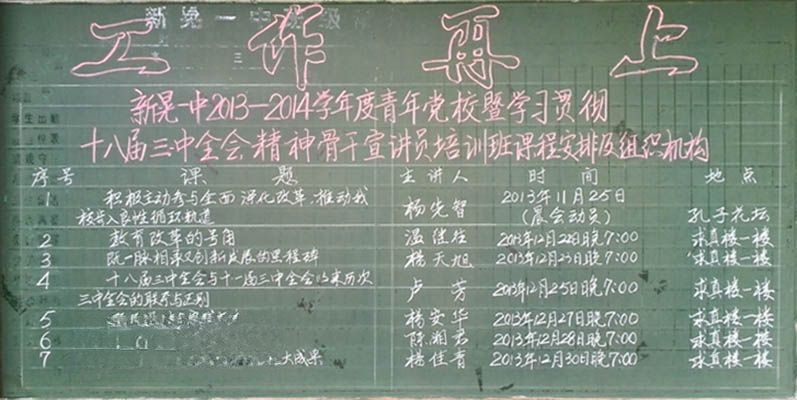 新晃一中
工作再上
新晃一中2013—2014学年度青年党校暨学习贯彻
十八届三中全会精神骨干宣讲员培训班课程安排及组织机构
序号 课题 主讲人 时间 地点
1 积极主动参与全面深化改革、推动我校步入良性循环轨道 杨先智 2013年11月25日(晨会动员) 孔子花坛
2 教育改革的号角 温 2013年12月22日晚7:00 求真楼一楼
3 既一脉相承又创新发展的里程碑 杨天旭 2013年12月23日晚7:00 求真楼一楼
4 十八届三中全会与十一届三中全会以来历次三中全会的联系与区别 卢芳 2013年12月25日晚7:00 求真楼一楼
5 杨安华 2013年12月27日晚7:00 求真楼一楼
6 陈湘君 2013年12月28日晚7:00 求真楼一楼
7 大成果 杨佳青 2013年12月30日晚7:00 求真楼一楼